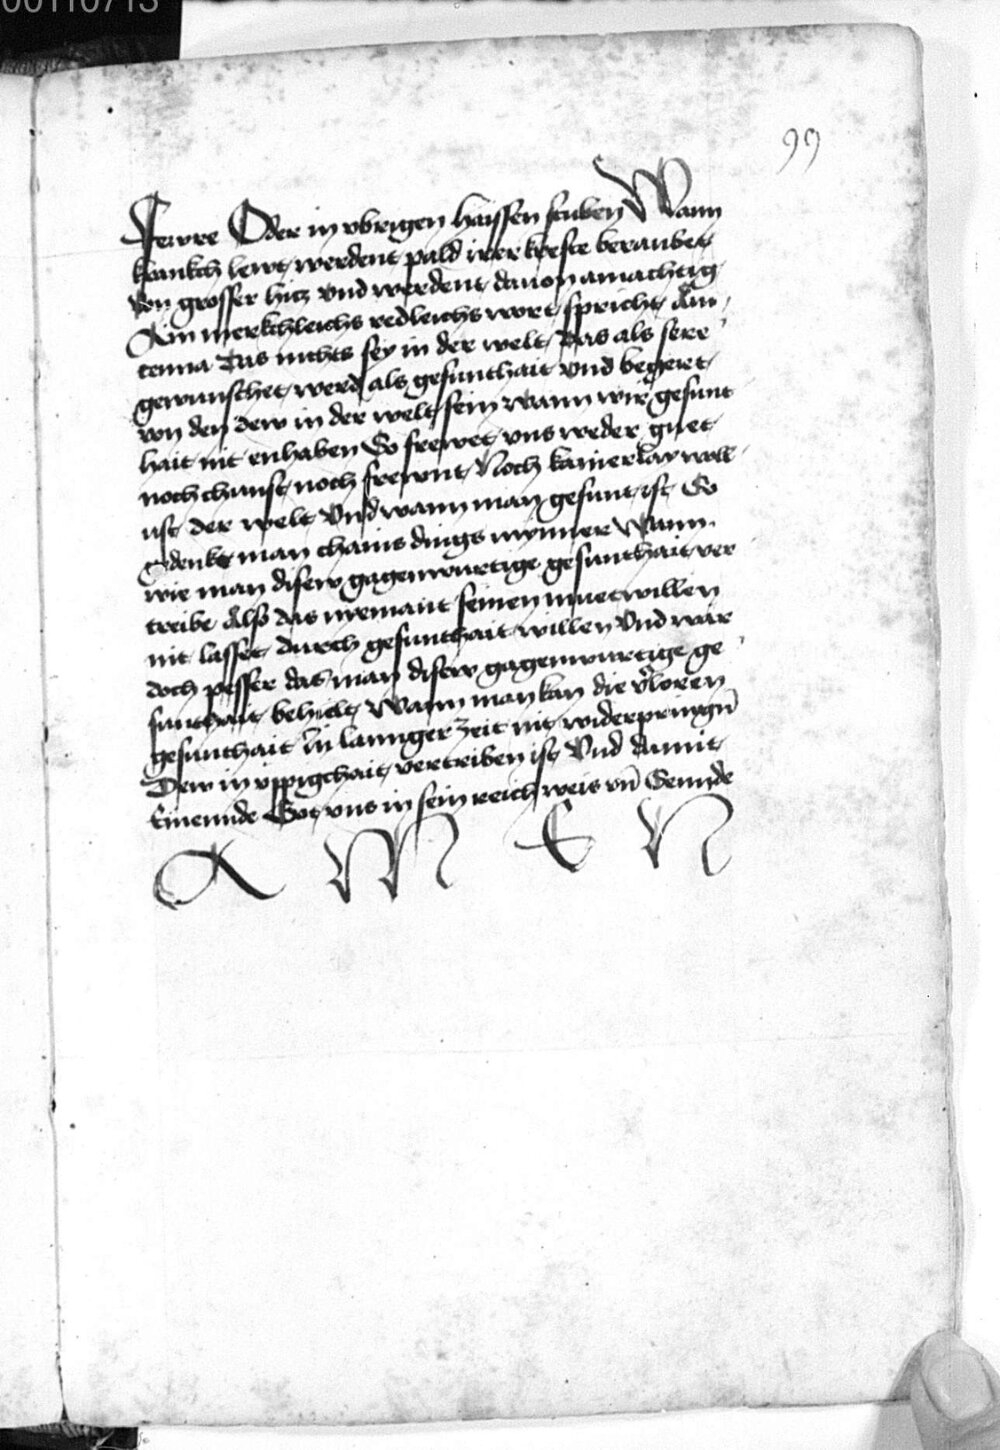 00110713
99
Fewre Oder in vbrigen haissen stuben Wann
krankch lewt werdent pald irer krefte beraubet
von grosser hicz vnd werdent dauon amachtig
Ain merkchleichs redleichs wort spricht Aui
cenna Das nichts sey in der welt Das als sere
gewunschet werd als gesunthait vnd begeret
von den dew in der welt sein wann wir gesunt
hait nit enhaben So frewet vns weder guet
noch chunst noch frewnt Noch kainerlay woll
ust der welt Vnd wann man gesunt ist So
gedenkt man chains dings mynner Wann
wie man disew gagenwurtige gesunthait ver
treibe Also das nyemant seinen muetwillen
nit lasset durch gesunthait willen Vnd wär
doch pesser das man disew gagenwurtige ge
sunthait behielt Wann man kan die v̄loren
gesunthait In lannger zeit nit widerpringn̄
Dew in vppigchait vertreiben ist Vnd damit
Got vns in sein reich weis vn̄
A M E N